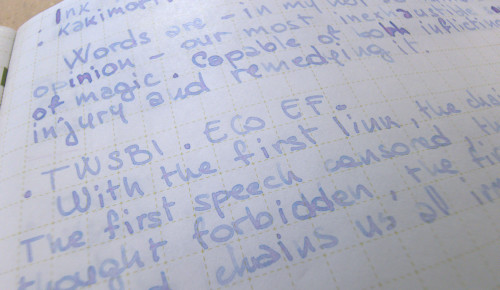 • Ink
• Kakimori
Words are - in my not so
opinion - our most inexhaustible
of magic. Capable of both inflicting
injury and remedying it.
• TWSBI. ECO EF.
With the first link, the chain
The first speech censored, the
thought forbidden, the fir
chains us all ir